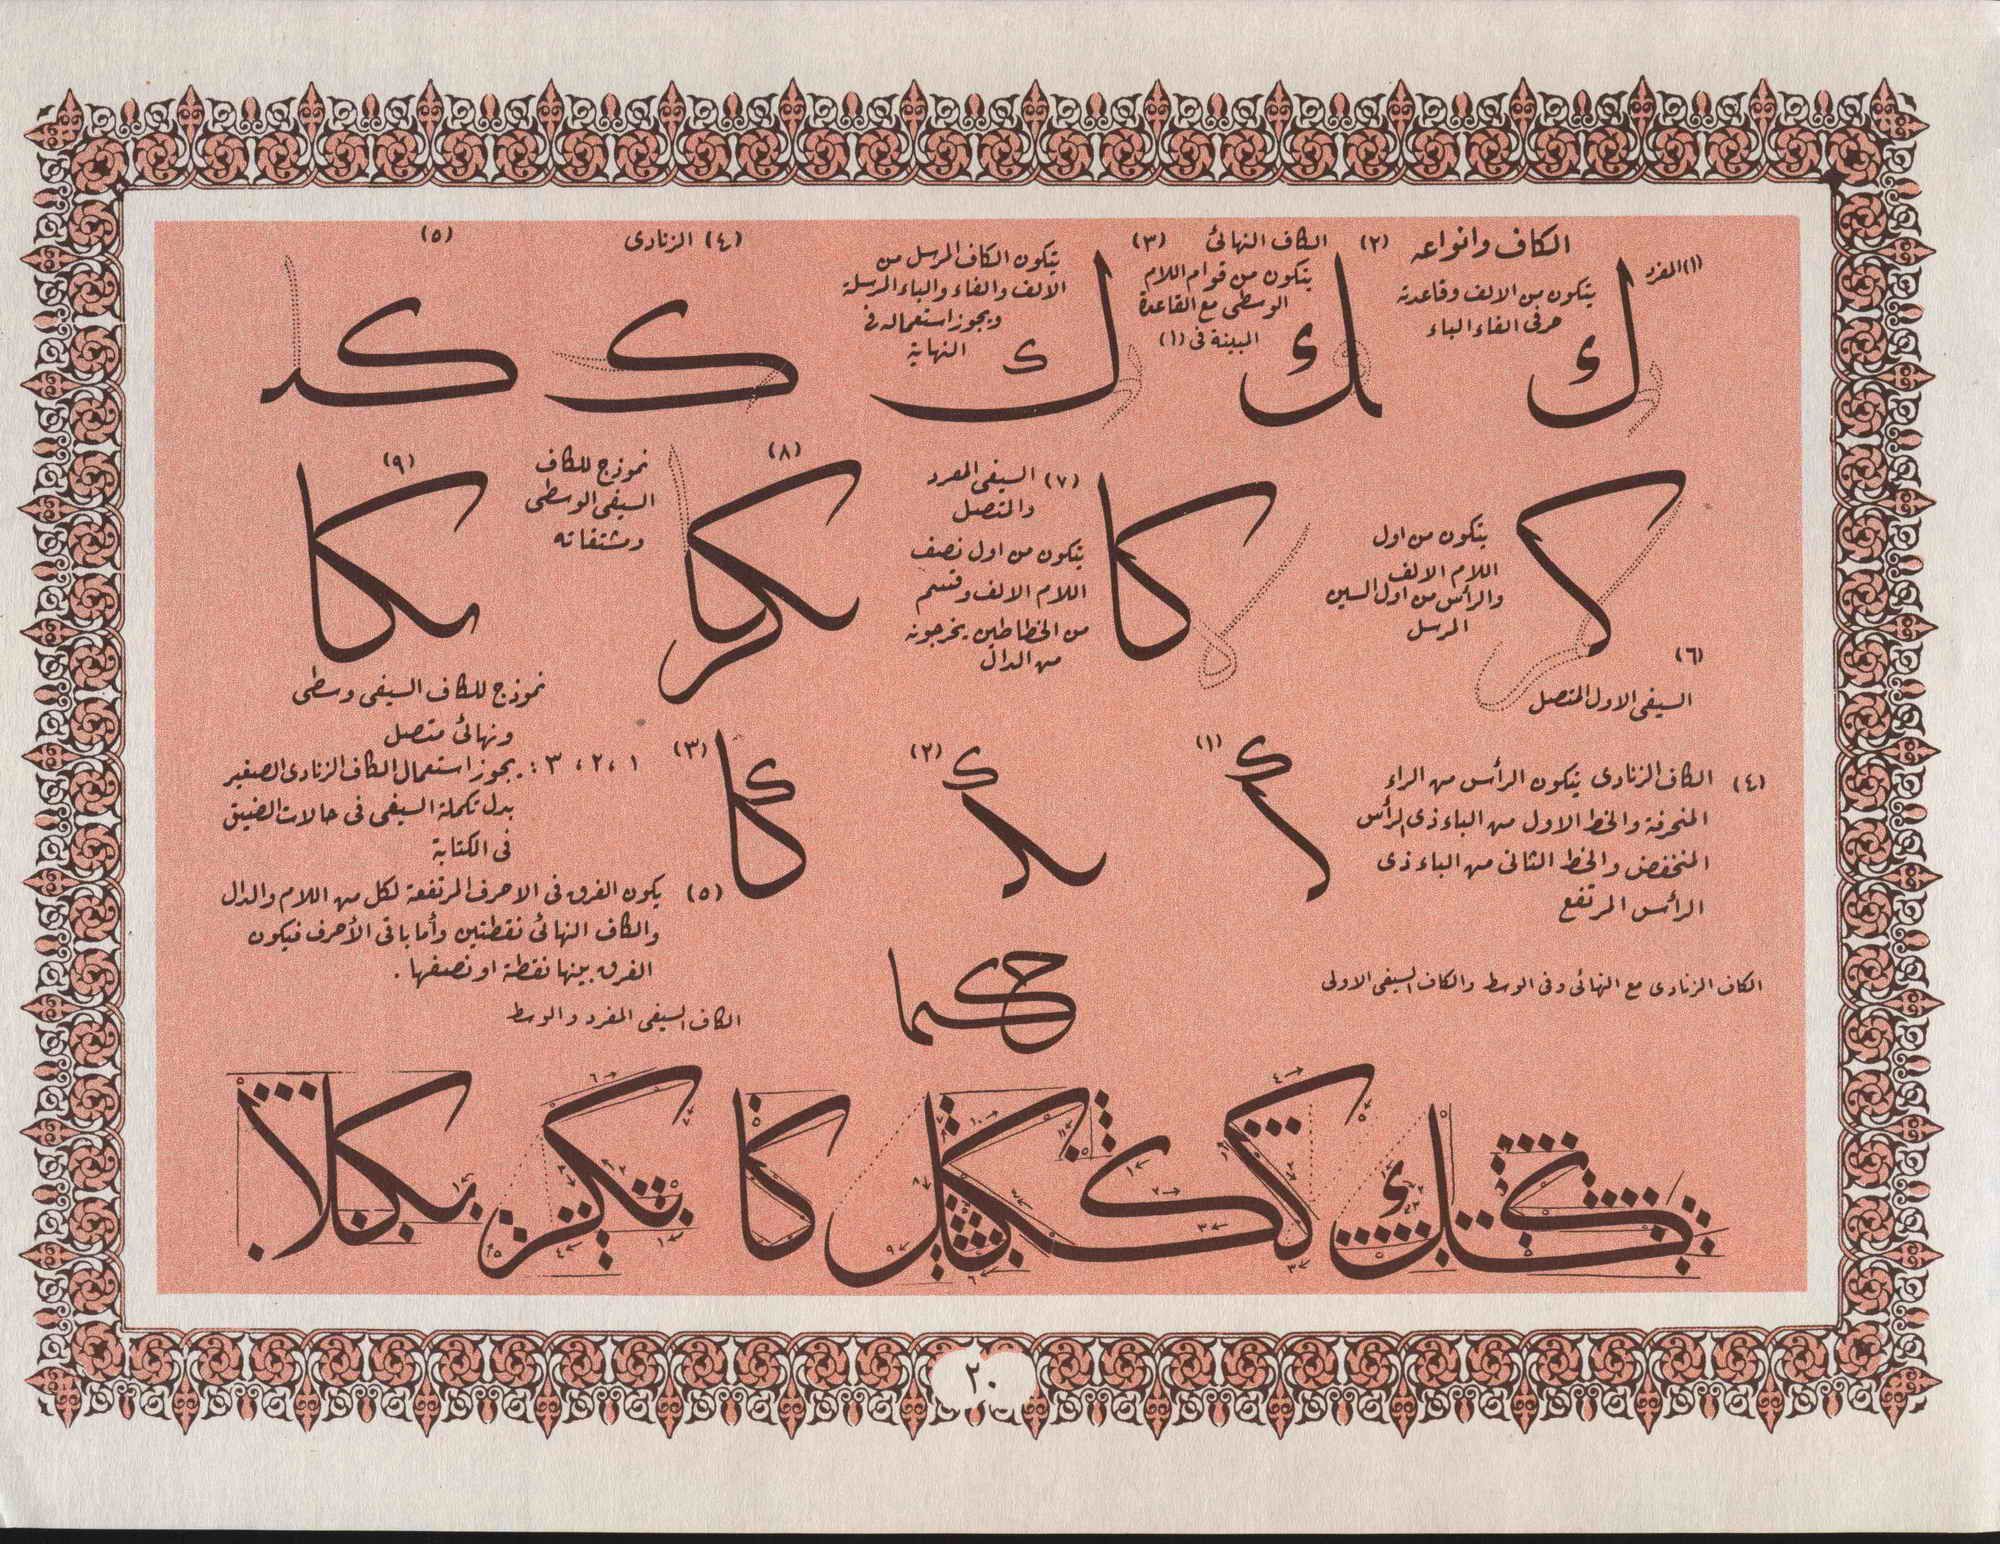 الكاف وانواعه
(١) المفرد
يتكون من الالف وقاعدته
حرفى الفاء الباء
ك
(٢) الكاف النهائى
يتكون من قوام اللام
الوسطى مع القاعدة
المبينة فى (١)
ك
(٣)
يتكون الكاف المرسل من
الالف والفاء والباء المرسلة
ويجوز استعماله فى
النهاية
ك
(٤) الزنادى
ك
(٥)
كد
كر
يتكون من اول
اللام الالف
والرأس من اول السين
المرسل
(٦)
السيفى الاول المتصل
كا
(٧) السيفى المفرد
والمتصل
يتكون من اول نصف
اللام الالف وقسم
من الخطاطين يخرجونه
من الدال
(٨)
نموذج للكاف
السيفى الوسطى
ومشتقاته
(٩)
نموذج للكاف السيفى وسطى
ونهائى متصل
(٤) الكاف الزنادى يتكون الرأس من الراء
المنحرفة والخط الاول من الباء ذى الرأس
المنخفض والخط الثانى من الباء ذى
الرأس المرتفع
(١)
(٢)
(٣)
كا
١ ، ٢ ، ٣ : يجوز استعمال الكاف الزنادى الصغير
بدل تكملة السيفى فى حالات الضيق
فى الكتابة
(٥) يكون الفرق فى الاحرف المرتفعة لكل من اللام والدال
والكاف النهائى نقطتين وأما باقى الأحرف فيكون
الفرق بينها نقطة او نصفها .
الكاف الزنادى مع النهائى وفى الوسط والكاف السيفى الاولى
حكما
الكاف السيفى المفرد والوسط
كا
٢٠